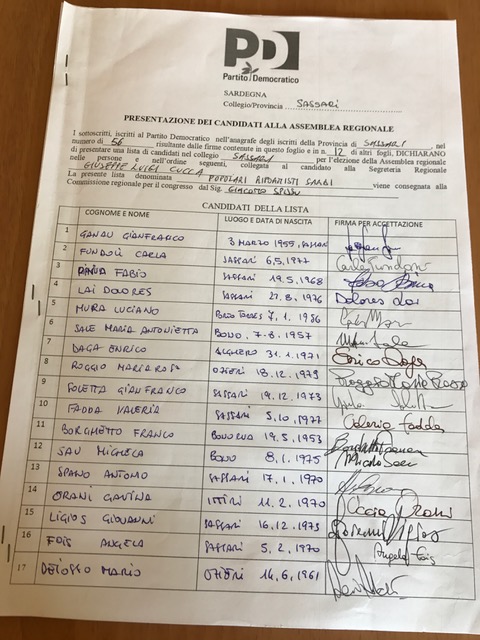 PD
Partito Democratico
SARDEGNA
Collegio/Provincia SASSARI
PRESENTAZIONE DEI CANDIDATI ALLA ASSEMBLEA REGIONALE
I sottoscritti, iscritti al Partito Democratico nell'anagrafe degli iscritti della Provincia di SASSARI nel
numero di 56 risultante dalle firme contenute in questo foglio e in n. 12 di altri fogli, DICHIARANO
di presentare una lista di candidati nel collegio SASSARI per l'elezione della Assemblea regionale
nelle persone e nell'ordine seguenti, collegata al candidato alla Segreteria Regionale
GIUSEPPE LUIGI CUCCA
La presente lista denominata POPOLARI RIFORMISTI SARDI viene consegnata alla
Commissione regionale per il congresso dal Sig. GIACOMO SPISSU
CANDIDATI DELLA LISTA
COGNOME E NOME LUOGO E DATA DI NASCITA FIRMA PER ACCETTAZIONE
1 GANAU GIANFRANCO 3 MARZO 1955, SASSARI
2 FUNDONI CARLA SASSARI 6,5,1977 Carla Fundoni
3 PINNA FABIO SASSARI 19.5.1968
4 LAI DOLORES SASSARI 27.8.1976 Dolores Lai
5 MURA LUCIANO PORTO TORRES 7.1.1986
6 SALE MARIA ANTONIETTA BONO, 7.8.1957
7 DAGA ENRICO ALGHERO 31.1.1971 Enrico Daga
8 ROGGIO MARIA ROSA OZIERI 18.12.1979 Roggio Maria Rosa
9 SOLETTA GIANFRANCO SASSARI 19.12.1973
10 FADDA VALERIA SASSARI 5.10.1977 Valeria Fadda
11 BORGHETTO FRANCO BONORVA 19.5.1953 Borghetto Franco
12 SAU MICHELA BONO 8.1.1975 Michela Sau
13 SPANO ANTONIO SASSARI 17.1.1970
14 ORANI GAVINA ITTIRI 11.2.1970
15 LIGIOS GIOVANNI SASSARI 16.12.1973 Giovanni Ligios
16 FOIS ANGELA SASSARI 5.2.1970 Angela Fois
17 DETTORI MARIO OZIERI 14.6.1961